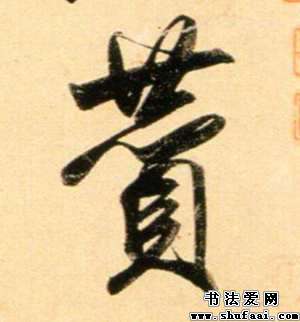 赞
书法爱网
www.shufaai.com